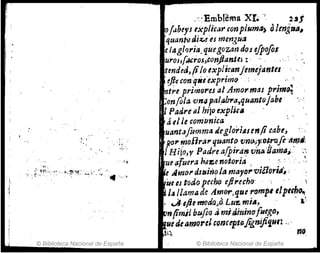 Emblema XI. 235
o sabeys explicar con pluma, ò lengua,
quanto dize es mengua
e la gloria, que gozan dos esposos
uros, sacros, constantes:
tended, si lo explican semejantes
este con que exprimo
ntre primores al Amor mas primo;
on sola vna palabra, quanto sabe
l Padre al hijo explica
à el le comunica
uanta summa de glorias en si cabe,
por mostrar quanto vno, y otro se ama
l Hijo, y Padre aspiran vna llama,
ue afuera haze notoria
e Amor diuino la mayor victoria,
ue es todo pecho estrecho
à la llama de Amor, que rompe el pecho,
A este modo, ò Luz mia,
vn simil busco à mi diuino fuego,
ue de amor el concepto signifique:
no
© Biblioteca Nacional de España
© Biblioteca Nacional de España